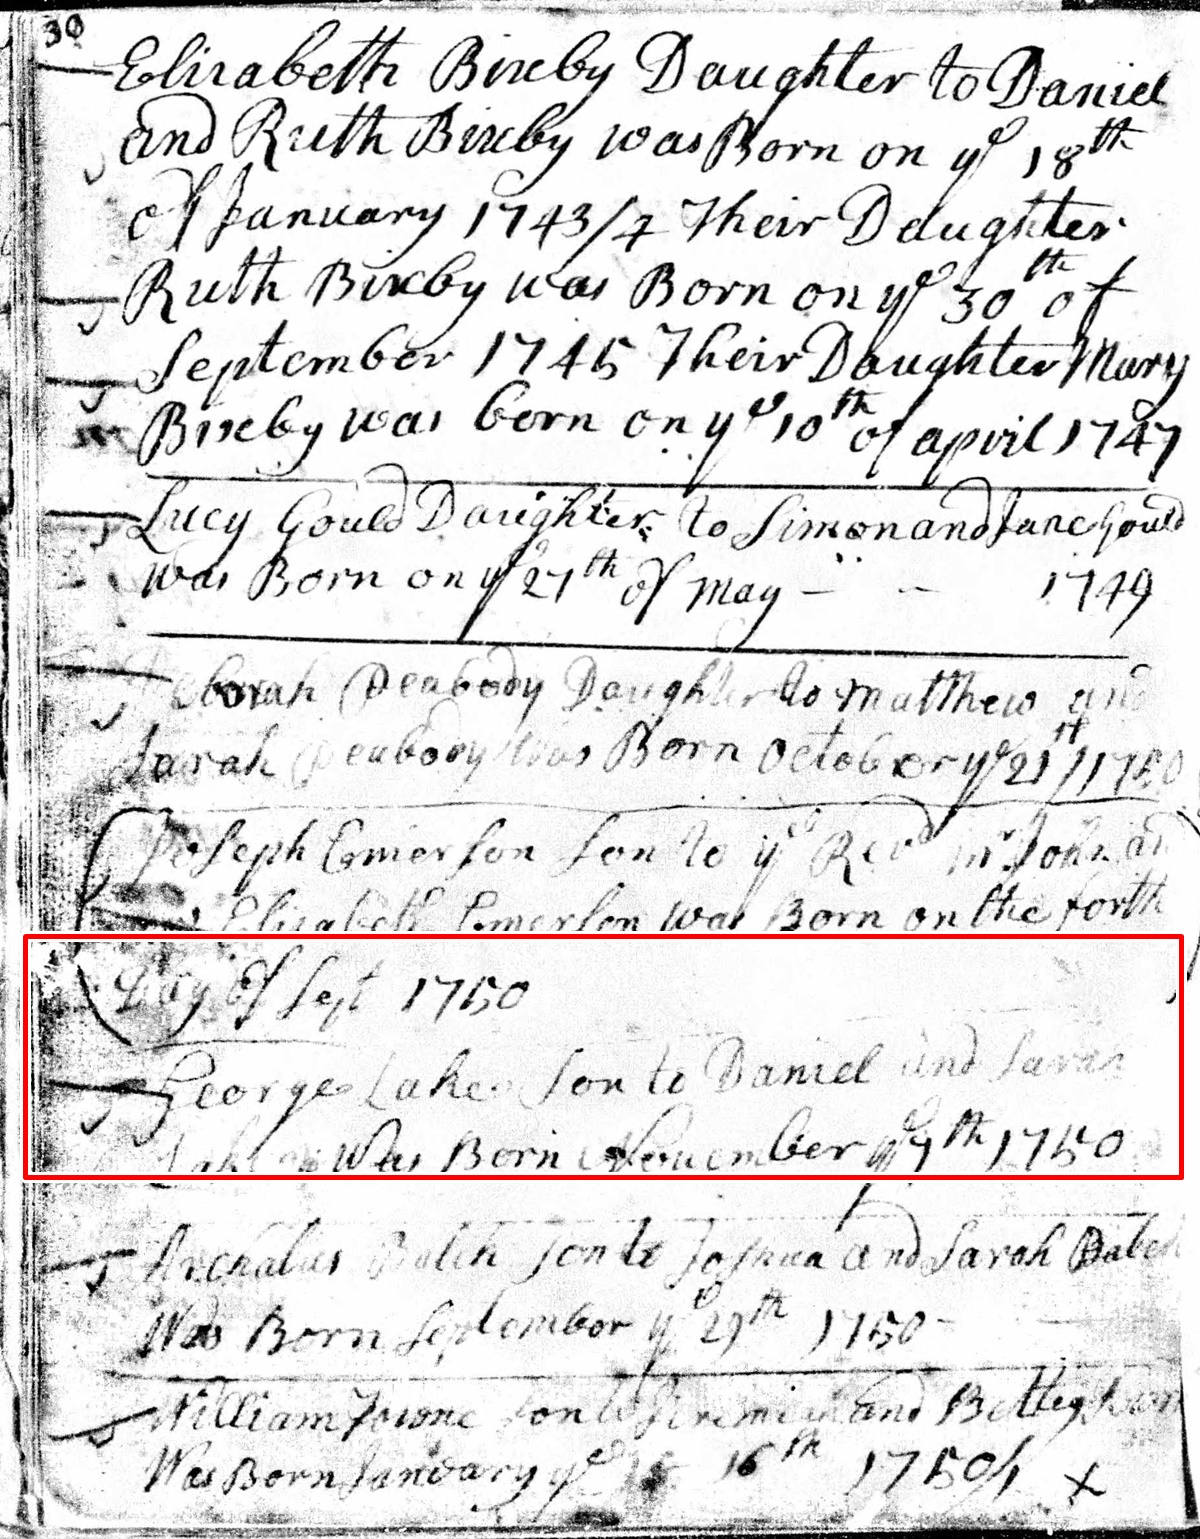 30
Elizabeth Bixby Daughter to Daniel
and Ruth Bixby was Born on yᵉ 18th
of January 1743/4 Their Daughter
Ruth Bixby was Born on yᵉ 30th of
September 1745 Their Daughter Mary
Bixby was born on yᵉ 10th of april 1747
Lucy Gould Daughter to Simon and Jane Gould
was Born on yᵉ 27th of May - - 1749
Deborah Peabody Daughter to Matthew and
Sarah Peabody was Born October yᵉ 21st 1750
Joseph Emerson Son to yᵉ Revd mr John and
Elizabeth Emerson was Born on the forth
Day of Sept 1750
George Lake Son to Daniel and Sarah
Lake Was Born November yᵉ 7th 1750
Archalus Balch Son to Joshua and Sarah Balch
Was Born September yᵉ 27th 1750 -
William Towne Son to and Bettey Towne
Was Born January yᵉ 16th 1750/1 x